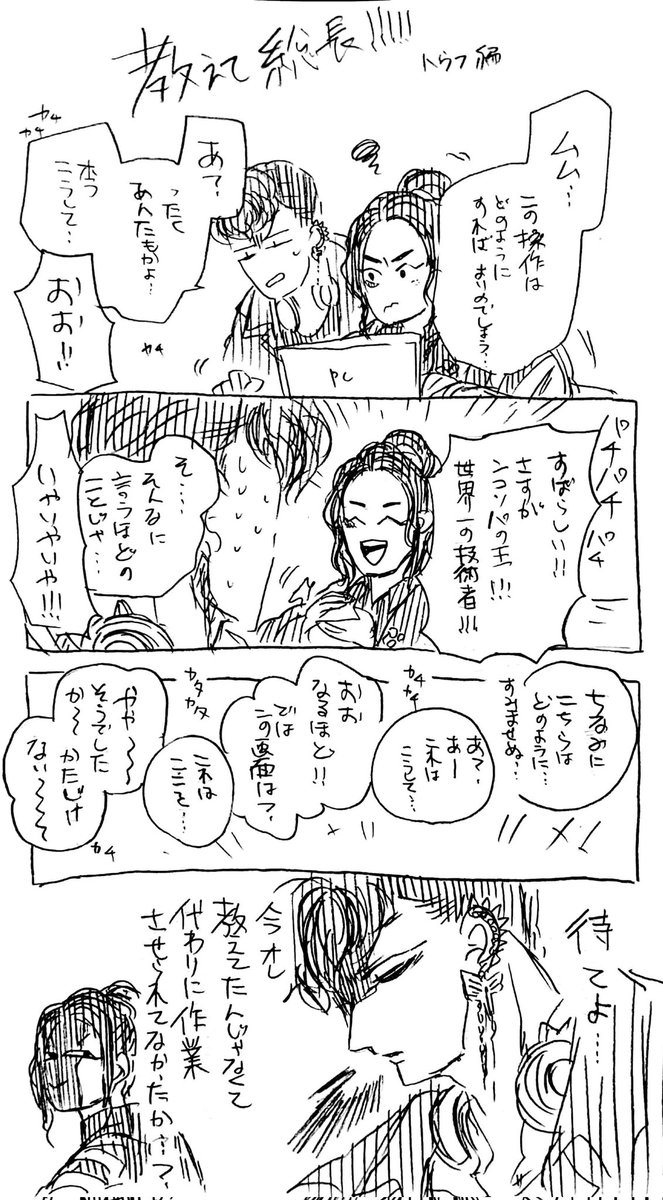 教えて総長!!!!!
トウフ編
ムム…
この操作は
どのように
すれば よいのでしょう?
あ?
ったく
あんたもかよ…
ホラ
こうして…
カチ
カチ
おお!!
カチ
PC
パチパチパチ
すばらしい!!
さすが
ンコソパの王!!!
世界一の技術者!!!
そ…
そんなに
言うほどの
ことじゃ…
いやいやいや!!!
ちなみに
こちらは
どのように…
すみませぬ…
カチ
カチ
あ?
あー
これは
こうして…
おお
なるほど!!
では
この画面は?
カタ
カタ
これは
ここを…
やや〜
そうでした
か〜 かたじけ
ない〜〜〜
カチ
待てよ…
今オレ
教えてたんじゃなくて
代わりに作業
させられてなかったか…?